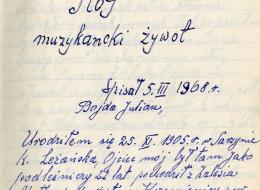 Mój
muzykancki żywot
Spisał 5. III 1968 r.
Bojda Julian,
Urodziłem się 25. II. 1905 r. w Sarzynie
k. Leżańska Ojciec mój był tam jako
podleśniczy 22 lat pochodził z